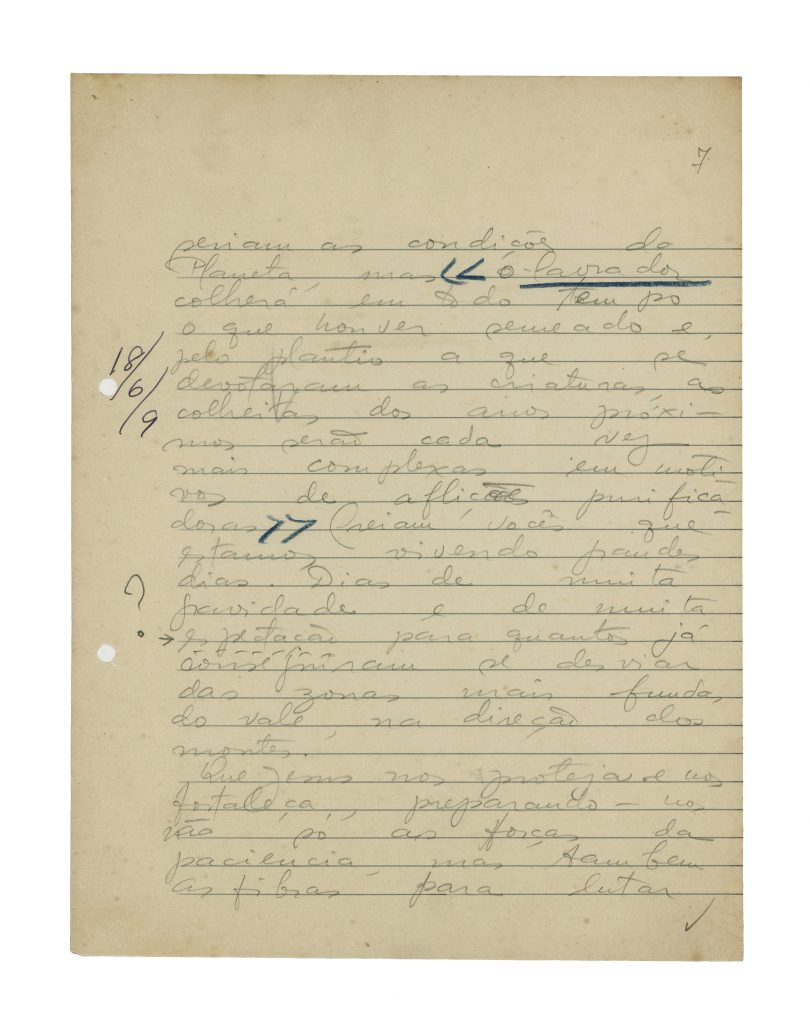 7
seriam as condições do
Planeta, mas << o lavrador
colherá em todo tempo
o que houver semeado e,
pelo plantio a que se
devotaram as criaturas, as
colheitas dos anos próxi-
mos serão cada vez
mais complexas em moti-
vos de aflições purifica
doras >> Creiam vocês que
estamos vivendo grandes
dias. Dias de muita
gravidade e de muita
para quantos já
conseguiram se desviar
das zonas mais fundas
do vale, na direção dos
montes.
Que Jesus nos proteja e nos
fortaleça, preparando-nos,
não só as forças da
paciência, mas tambem
as fibras para lutar
18/6/9
?